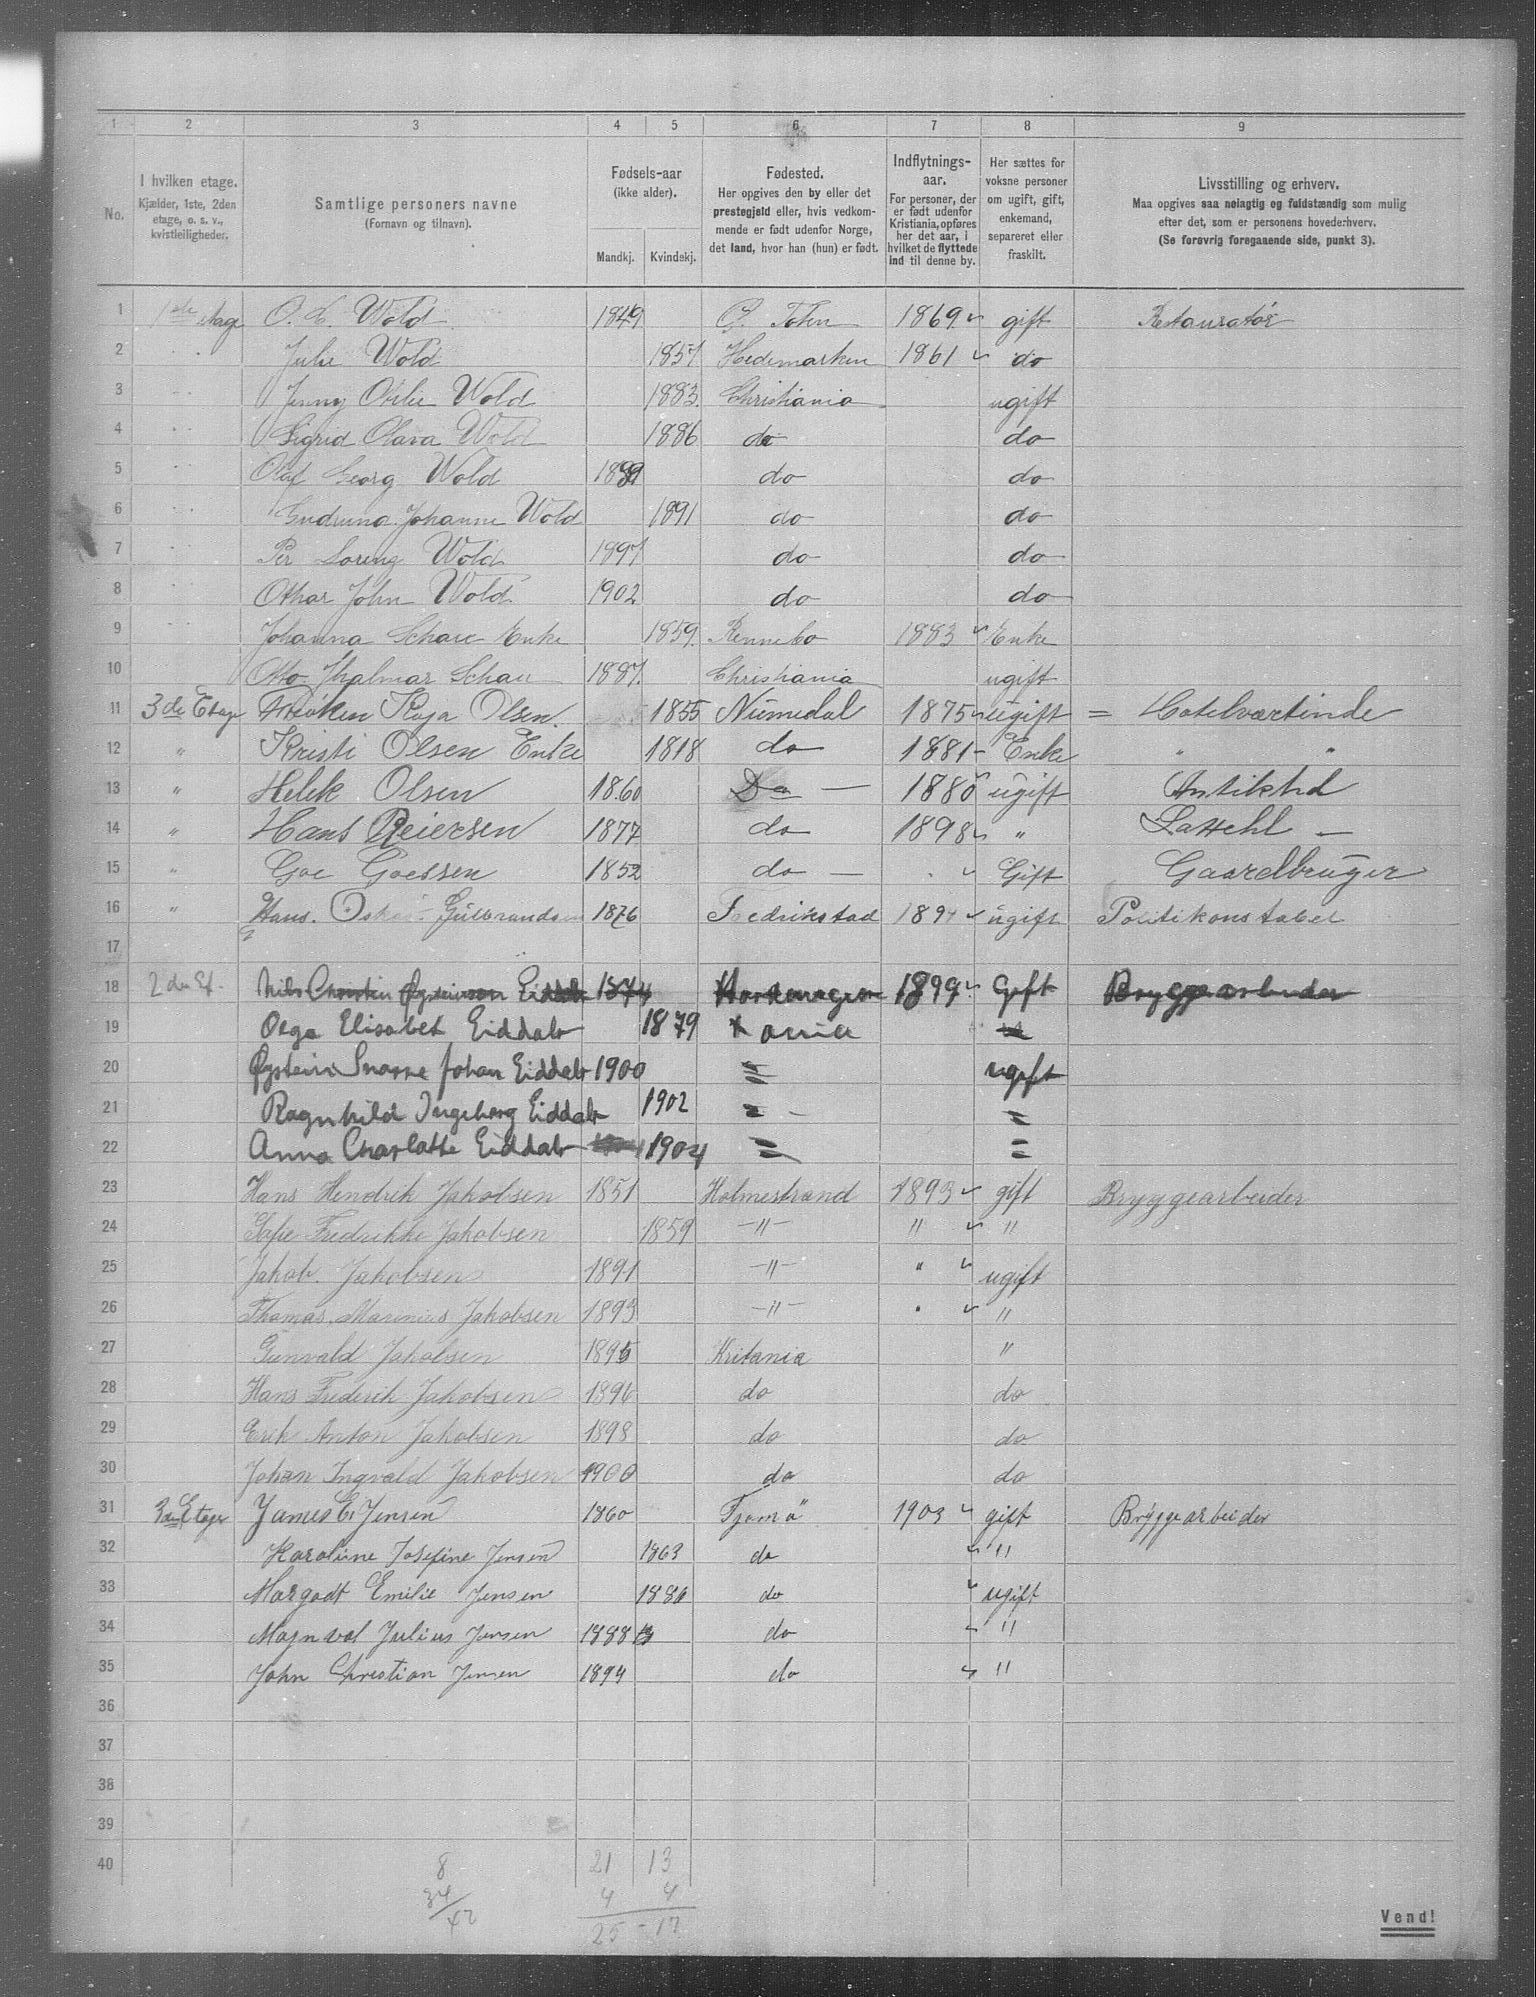 1 2 3 4 5 6 7 8 9
No.
I hvilken etage.
Kjælder, 1ste, 2den
etage, o. s. v.,
kvistleiligheder.
Samtlige personers navne
(Fornavn og tilnavn).
Fødsels-aar
(ikke alder).
Mandkj. Kvindekj.
Fødested.
Her opgives den by eller det
prestegjeld eller, hvis vedkom-
mende er født udenfor Norge,
det land, hvor han (hun) er født.
Indflytnings-
aar.
For personer, der
er født udenfor
Kristiania, opføres
her det aar, i
hvilket de flyttede
ind til denne by.
Her sættes for
voksne personer
om ugift, gift,
enkemand,
separeret eller
fraskilt.
Livsstilling og erhverv.
Maa opgives saa nøiagtig og fuldstændig som mulig
efter det, som er personens hovederhverv.
(Se forøvrig foregaaende side, punkt 3).
1 1ste etage O. L. Wold 1849 Tohn 1869 gift Restauratør
2 Julie Wold 1857 Hedemarken 1861 do
3 Jenny Otilie Wold 1883. Christiania ugift
4 Sigrid Olava Wold 1886 do do
5 Olaf Georg Wold 1889 do do
6 Gudruna Johanne Wold 1891 do do
7 Per Loreng Wold 1897 do do
8 Othar John Wold 1902 do do
9 Johanna Schau Enke 1859. Rennebo 1883 Enke
10 Otto Hjalmar Schau 1887. Christiania ugift
11 3de Etage Frøken Kaja Olsen. 1855 Numedal 1875 ugift = Hotelværtinde
12 " Kristi Olsen Enke 1818 do 1881 Enke " "
13 " Helek Olsen 1860 Do — 1880 ugift
14 " Hans Reiersen 1877 do 1898 "
15 " Goe Goessen 1852 do — Gift Gaardbruger
16 " Hans. Oskar Gulbrandsen 1876 Fredrikstad 1897 ugift Politikonstabel
17
18 2den Et. Nils Christin Øysteinson Eiddal 1874 1899 Gift Bryggearbeider
19 Olga Elisabet Eiddal 1879 "
20 Øystein Snorre Johan Eiddal 1900 = ugift
21 Ragnhild Ingeborg Eiddal 1902 = - =
22 Anna Charlotte Eiddal 1904 = =
23 Hans Hendrik Jakobsen 1851 Holmestrand 1893 gift Bryggearbeider
24 Sofie Fredrikke Jakobsen 1859 —"— " "
25 Jakob. Jakobsen 1891 —"— " ugift
26 Thomas Marinius Jakobsen 1893 —"— "
27 Gunvald Jakobsen 1895 Kritania "
28 Hans Frederik Jakobsen 1896 do do
29 Erik Anton Jakobsen 1898 do do
30 Johan Ingvald Jakobsen 1900 do do
31 3die Etage James E. Jensen 1860 Tjømø 1903 gift Bryggearbeider
32 Karoline Josefine Jensen 1863 do "
33 Margodt Emilie Jensen 1886 do ugift
34 Majnval Julius Jensen 1888 do "
35 John Christian Jensen 1894 do "
36
37
38
39
40
8 21 13
34 4 4
42 25 - 17
Vend!